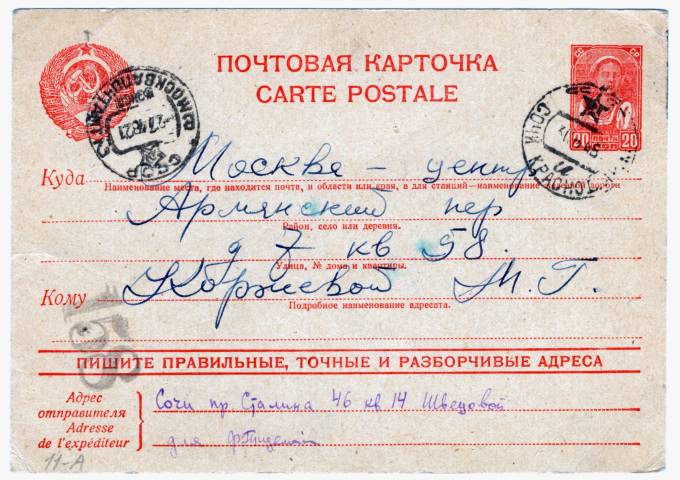 ПОЧТОВАЯ КАРТОЧКА
CARTE POSTALE
20 ПОЧТА 20
СОЧИ КРАСНОД.
МОСКВА ПОЧТАМТ
СССР
Куда Москва - центр
Наименование места, где находится почта, и области или края, а для станций—наименование железной дороги
Армянский пер
Район, село или деревня.
д 7 кв 58.
Улица, № дома и квартиры.
Кому Коржевской М. Г.
Подробное наименование адресата.
158
ПИШИТЕ ПРАВИЛЬНЫЕ, ТОЧНЫЕ И РАЗБОРЧИВЫЕ АДРЕСА
Адрес отправителя
Adresse de l'expéditeur
Сочи пр. Сталина 46 кв 14 Швецовой
для
11-А